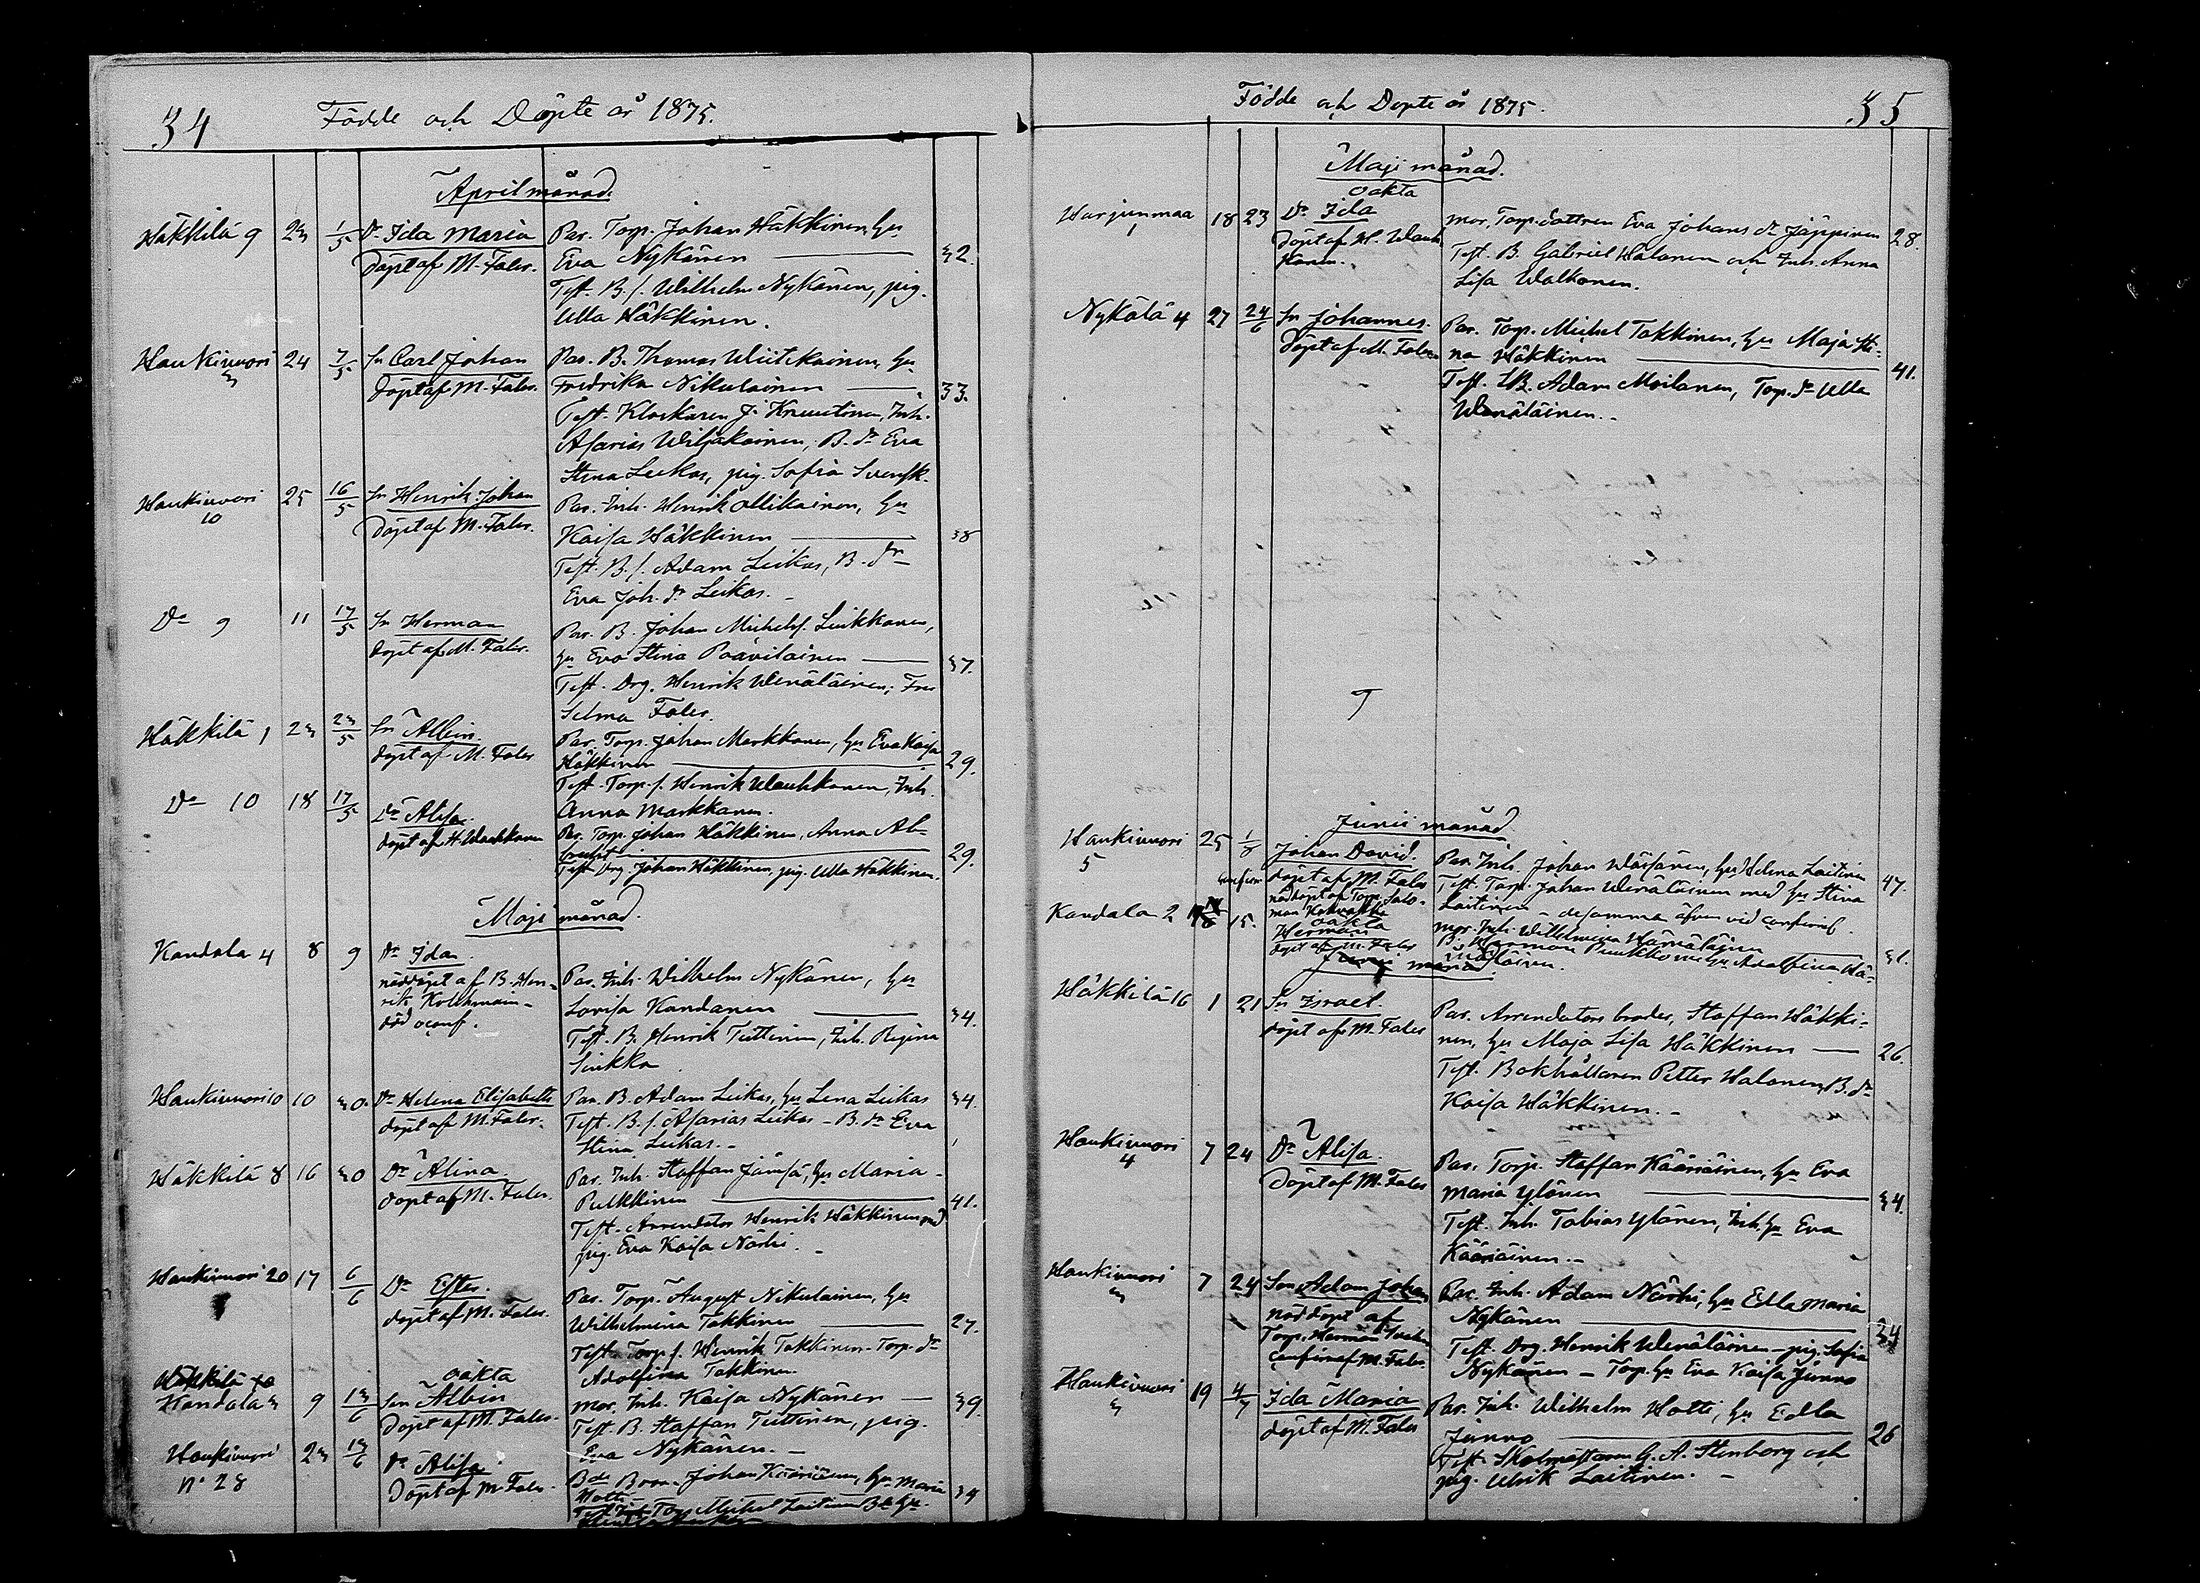 34
Födde och Döpte år 1875.
April månad.
Häkkilä 9 23 1/5 Dr Ida Maria
döpt af M. Faler.
Par. Torp. Johan Häkkinen, hu
Eva Nykänen 32.
Test. B. s. Wilhelm Nykänen, pig.
Ulla Häkkinen.
Haukivuori 3 24 7/5 Sn Carl Johan
Döpt af M. Faler.
Par. B. Thomas Wiitikainen, hu
Fredrika Nikulainen 33.
Test. Klockaren J. Knuutinen, Inh.
Asarias Wiljakainen, B. dr Eva
Stina Leikas, pig. Sofia Svensk.
Haukivuori 10 25 16/5 Sn Henrik Johan
Döpt af M. Faler.
Par. Inh. Henrik Ollikainen, hu
Kaisa Häkkinen 38
Test. B. s. Adam Leikas, B. dr
Eva Joh. dr Leikas.
Do 9 11 17/5 Sn Herman
döpt af M. Faler.
Par. B. Johan Michelss. Liukkonen,
hu Eva Stina Paavilainen 37.
Test. Drg. Henrik Wenäläinen, Fru
Selma Faler.
Häkkilä 1 23 23/5 Sn Albin.
döpt af M. Faler
Par. Torp. Johan Markkanen, hu Eva Kaisa
Häkkinen 29.
Test. Torp. s. Henrik Wauhkonen, Inh.
Anna Markkanen.
Do 10 18 17/5 Dr Alisa.
döpt af H. Wauhkonen
Par. Torp. Johan Häkkinen, Anna Al-
brecht 29.
Test. Drg. Johan Häkkinen, pig. Ulla Häkkinen.
Maji månad.
Kandala 4 8 9 Dr Ida.
nöddöpt af B. Hen-
rik Kolehmain-
död oconf.
Par. Inh. Wilhelm Nykänen, hu
Lovisa Kandanen 34.
Test. B. Henrik Tuttinen, Inh. Regina
Sinkko
Haukivuori 10 10 30. Dr Helena Elisabeth
döpt af M. Faler.
Par. B. Adam Leikas, hu Lena Leikas 34.
Test. B. s. Asarias Leikas - B. dr Eva
Stina Leikas.
Häkkilä 8 16 30 Dr Alina
döpt af M. Faler.
Par. Inh. Staffan Jämsä, hu Maria
Pulkkinen 41.
Test. Arrendator Henrik Häkkinen med
pig. Eva Kaisa Närhi.
Haukivuori 20 17 6/6 Dr Ester.
döpt af M. Faler.
Par. Torp. August Nikulainen, hu
Wilhelmina Takkinen 27.
Test. Torp. s. Henrik Takkinen - Torp. dr
Adolfina Takkinen
Kandala 3 9 13/6 oäkta
Sn Albin
Döpt af M. Faler.
mor. Inh. Kaisa Nykänen 39.
Test. B. Staffan Tuttinen, pig.
Eva Nykänen.
Haukivuori
No 28 23 13/6 Dr Alisa
Döpt af M. Faler.
Bde Bron. Johan Kääriäinen, hu Maria
Hotti 34
Test. Torp. Michel Laitinen
Födde och Döpte år 1875.
35
Maji månad.
Harjunmaa 1 18 23 oäkta
Dr Ida
döpt af H. Wauh-
konen.
mor, Torp. dottren Eva Johans dr Jäppinen 28.
Test. B. Gabriel Halonen och Inh. Anna
Lisa Walkonen.
Nykälä 4 27 24/6 Sn Johannes.
döpt af M. Faler
Par. Torp. Michel Takkinen, hu Maja Sti-
na Häkkinen 41.
Test. B. Adam Moilanen, Torp. dr Ulla
Wenäläinen.
Junii månad.
Haukivuori 5 25 1/8 Johan David.
döpt af M. Faler
nöddöpt af Torp. Salo-
mon
Par. Inh. Johan Wäisänen, hu Helena Laitinen 47.
Test. Torp. Johan Wenäläinen med hu Stina
Laitinen - desamma äfven vid confirmat.
Kandala 2 15. oäkta
Herman
döpt af M. Faler
mor. Inh. Wilhelmina Hämäläinen 31.
B. Herman Puukko med hu Adolfina Hä-
mäläinen.
Junii månad
Häkkilä 16 1 21 Sn Israel.
döpt af M. Faler
Par. Arrendators broder, Staffan Häkki-
nen, hu Maja Lisa Häkkinen 26.
Test. Bokhållaren Petter Halonen, B. dr
Kaisa Häkkinen.
Haukivuori 4 7 24 Dr Alisa.
Döpt af M. Faler
Par. Torp. Staffan Kääriäinen, hu Eva
Maria Ylönen 34.
Test. Inh. Tobias Ylönen, Inh. hu Eva
Kääriäinen.
Haukivuori 3 7 24 Son Adam Johan
nöddöpt af
Torp. Herman
confir. af M. Faler.
Par. Inh. Adam Närhi, hu Edla Maria
Nykänen 34
Test. Drg. Henrik Wenäläinen - pig. Sofia
Nykänen - Torp. hu Eva Kaisa Junno
Haukivuori 3 19 4/7 Ida Maria
döpt af M. Faler
Par. Inh. Wilhelm Hotti, hu Edla
Junno 26
Test. Skolmästaren G. A. Stenborg och
pig. Ulrik Laitinen.